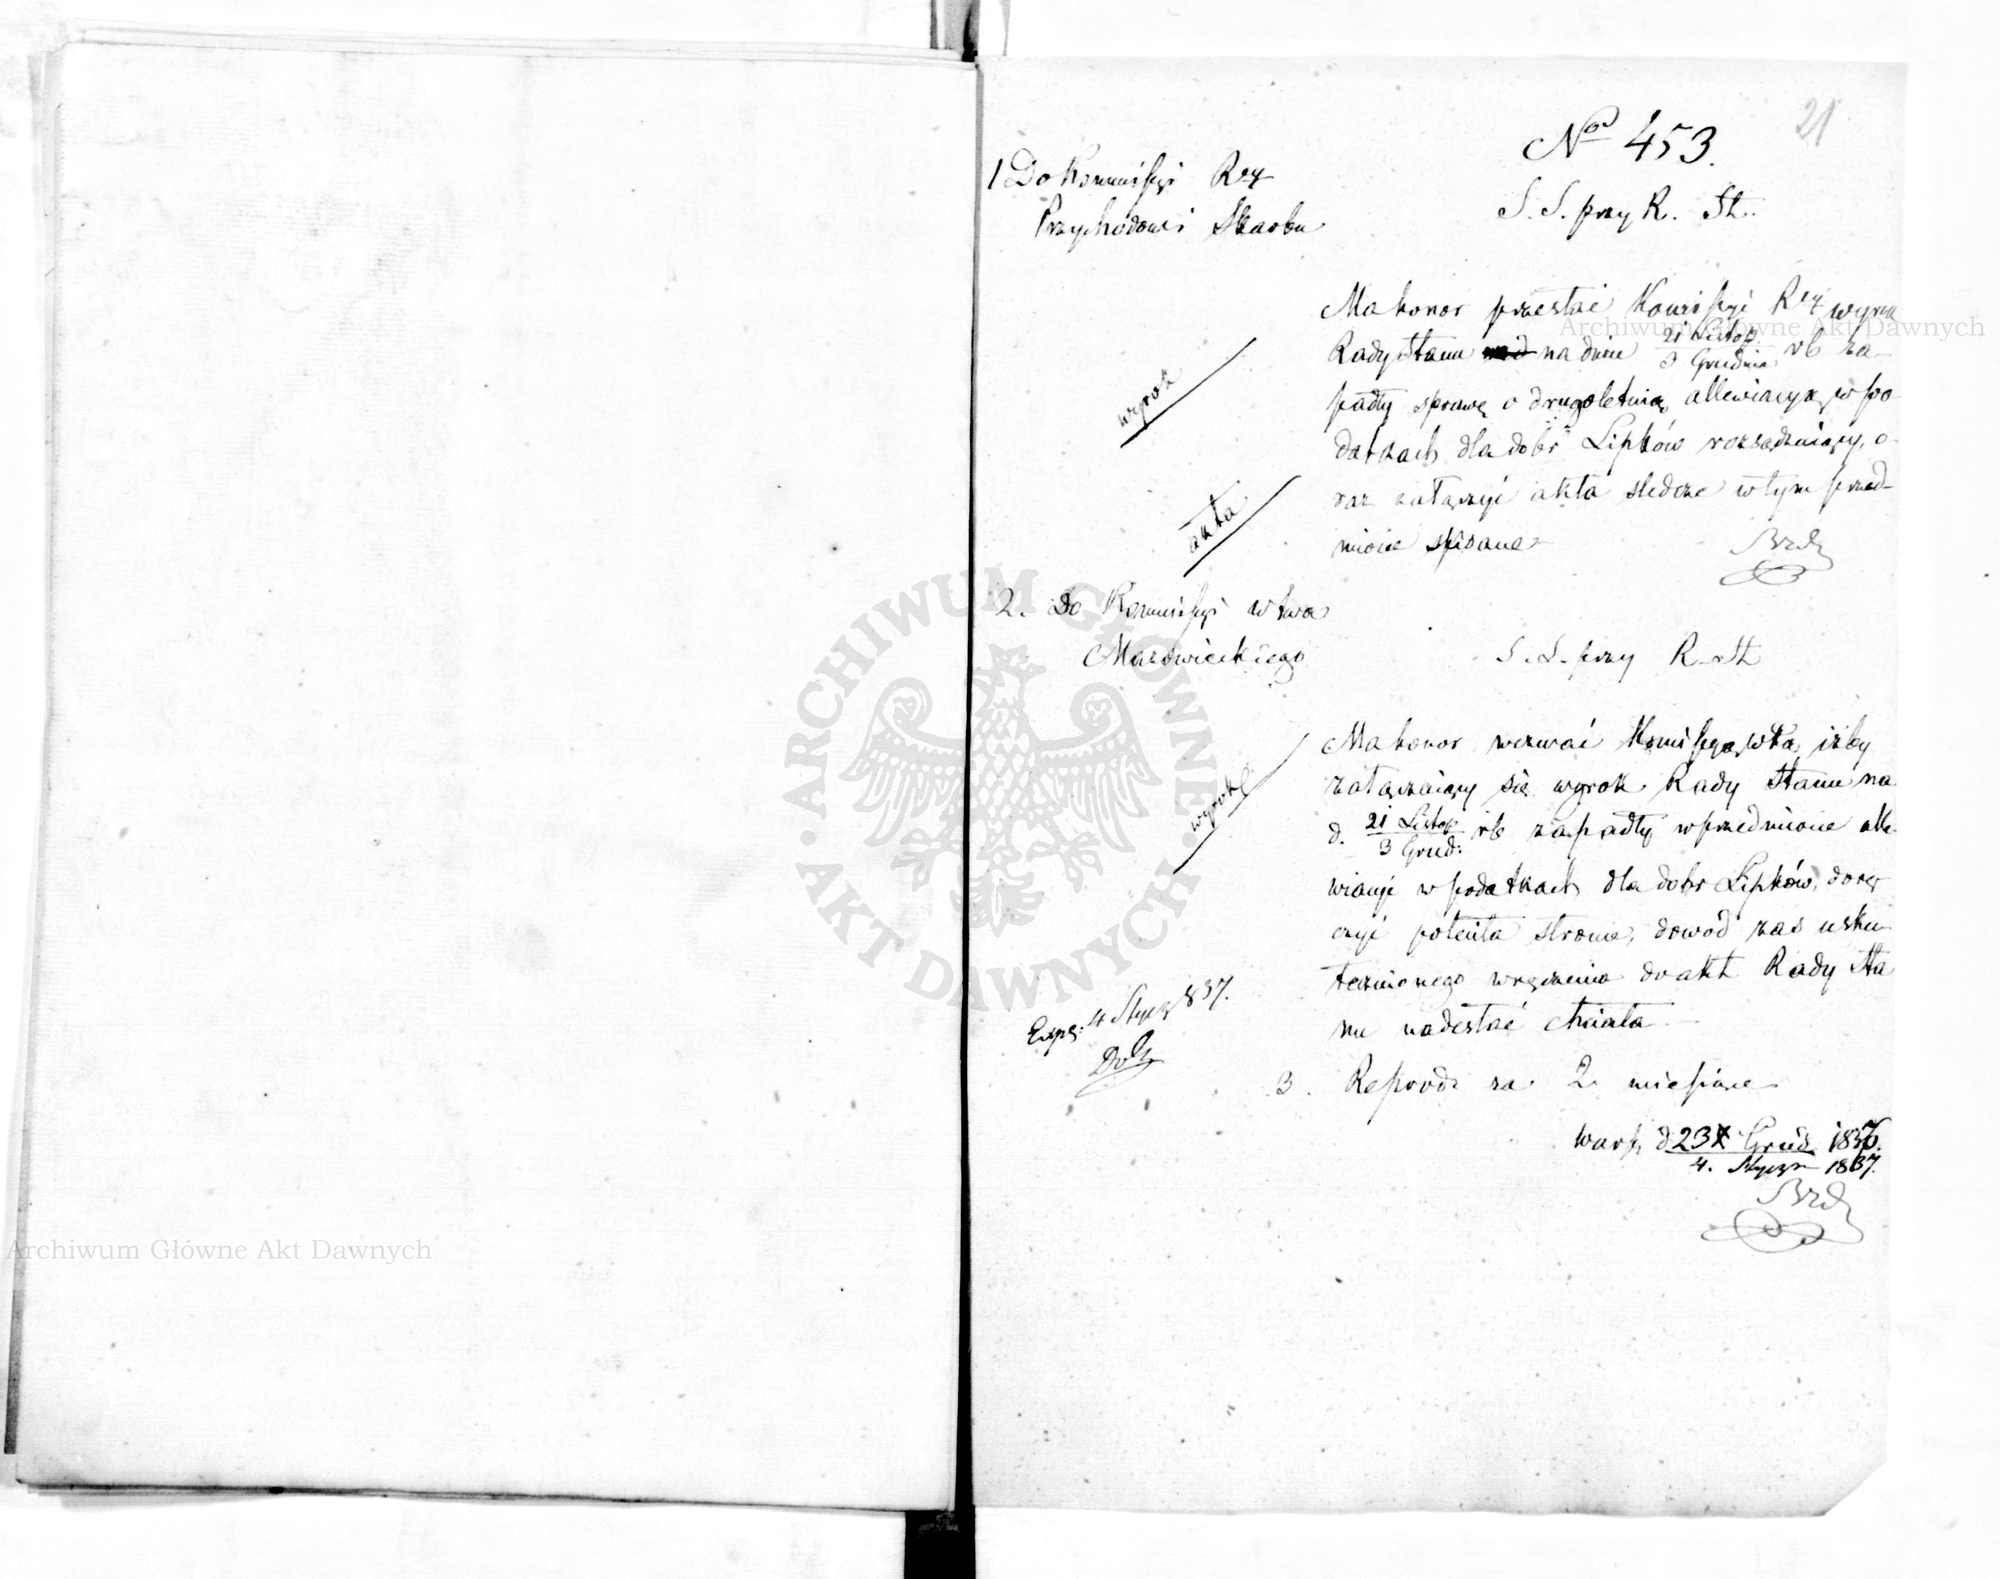 21
No 453.
1 Do Kommissyi Rzą
Przychodów i Skarbu
S. S. przy R. St.
Ma honor przesłać Kommissyi Rzą wyrok
Rady Stanu na dniu 21 Listop. / 3 Grudnia rb za-
padły sprawę o drugoletnią allewiacyą w po-
datkach dla dobr Lipków rozsądzaiący, o-
raz załączyć akta śledcze w tym przed-
miocie spisane
wyrok
akta
Brdz
2. Do Kommissyi Wtwa
Mazowieckiego
S. S. przy R. St
Ma honor wezwać Komissyą Wtką iżby
załączaiący się wyrok Rady Stanu na
d. 21 Listop / 3 Grud: rb zapadły w przedmiocie alle-
wiacyi w podatkach dla dobr Lipków, dorę
czyć potenta stronie, dowod zaś usku-
tecznionego wręczenia do akt Rady Sta
nu nadesłać chciała
wyrok
Exp: 4 Stycz 837.
3. Reprod: za 2 miesiące
Warsz d 23 Grud. 1836. / 4. Stycznia 1837.
Brdz
Archiwum Główne Akt Dawnych
Archiwum Główne Akt Dawnych
ARCHIWUM GŁÓWNE · AKT DAWNYCH ·